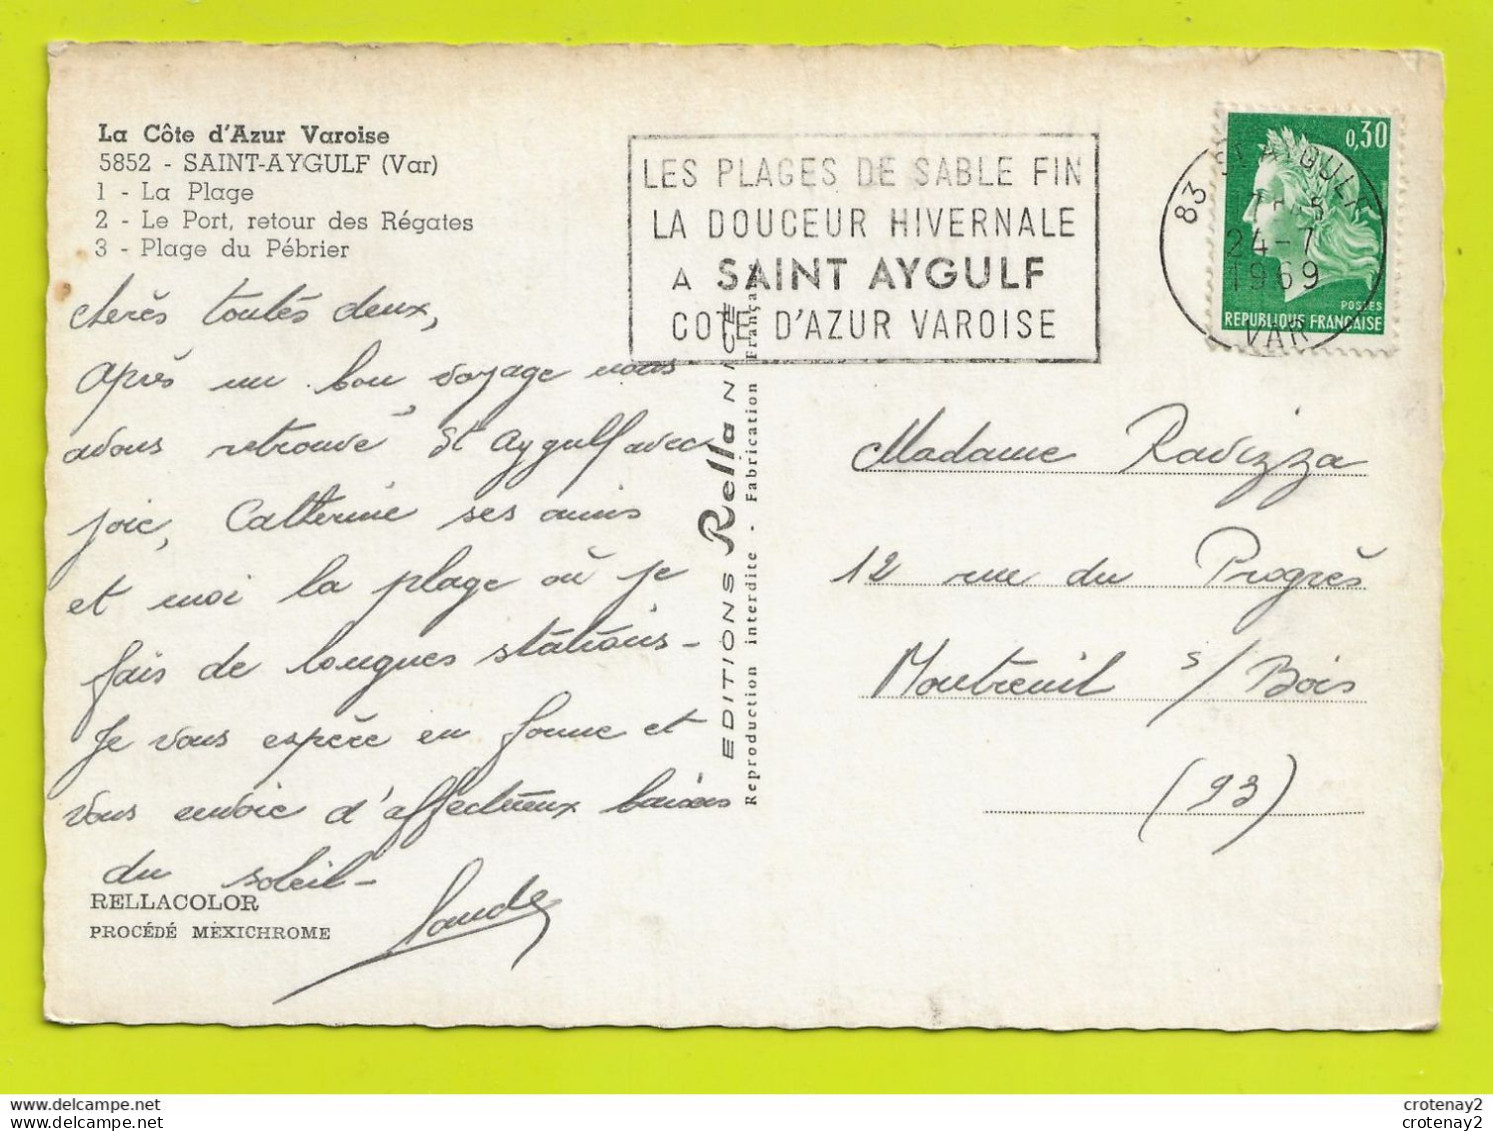 La Côte d'Azur Varoise
5852 - SAINT-AYGULF (Var)
1 - La Plage
2 - Le Port, retour des Régates
3 - Plage du Pébrier
chères toutes deux,
Après un bon voyage nous
avons retrouvé St Aygulf avec
joie, Catherine ses amis
et moi la plage où je
fais de longues stations-
Je vous espère en forme et
vous envoie d'affectueux baisers
du soleil-
RELLACOLOR
PROCÉDÉ MEXICHROME
LES PLAGES DE SABLE FIN
LA DOUCEUR HIVERNALE
A SAINT AYGULF
COTE D'AZUR VAROISE
EDITIONS Rella NICE
Reproduction interdite - Fabrication Française
83 ST AYGULF
24-7
1969
VAR
0,30
POSTES
REPUBLIQUE FRANÇAISE
Madame Ravizza
12 rue du Progrès
Montreuil s/Bois
(93)
crotenay2
crotenay2